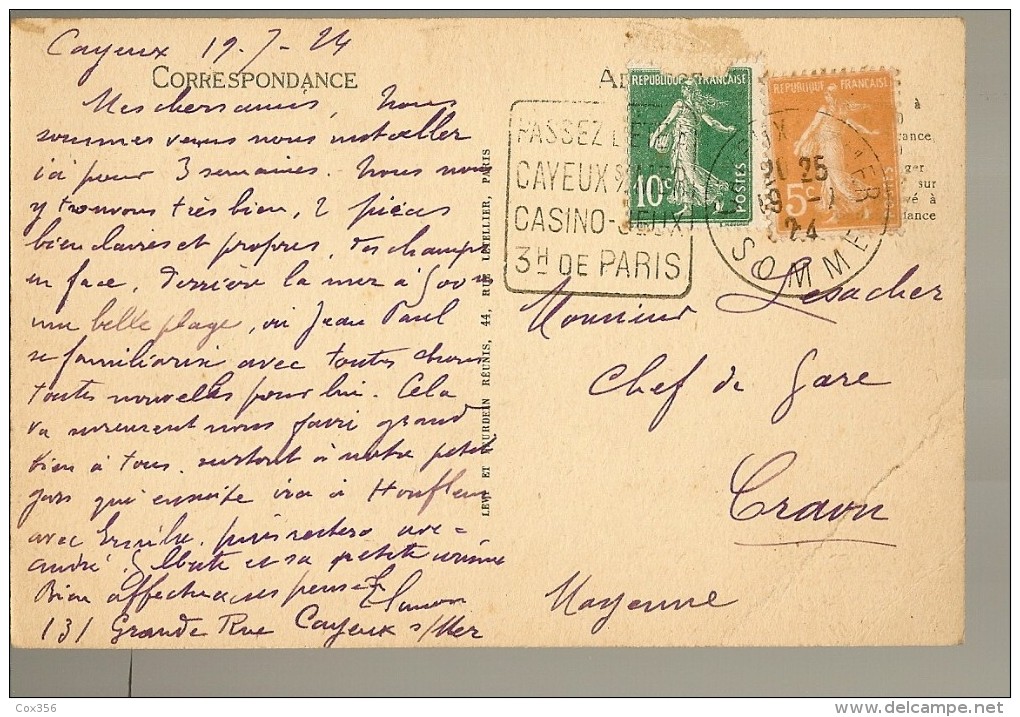 Cayeux 19-7-24
CORRESPONDANCE
Mes chers amis, Nous
sommes venus nous installer
ici pour 3 semaines. Nous nous
y trouvons très bien, 2 pièces
bien claires et propres, des champs
en face, derrière la mer à 500 m
une belle plage, où Jean Paul
se familiarise avec toutes choses
toutes nouvelles pour lui. Cela
va surement nous faire grand
bien à tous, surtout à notre petit
gars qui ensuite ira à Honfleur
avec puis restera avec
andré, et sa petite cousine
Bien affectueuses pensées
131 Grande Rue Cayeux s/Mer
LEVY ET NEURDEIN RÉUNIS, 44, RUE LETELLIER, PARIS
PASSEZ L'ETE
CAYEUX S/MER
CASINO-JEUX
3H DE PARIS
REPUBLIQUE FRANÇAISE
10c
POSTES
REPUBLIQUE FRANÇAISE
5c
POSTES
21 25
19 -7
24
SOMME
à
rance,
ger
sur
vé à
dance
Monsieur Lesacher
Chef de Gare
Craon
Mayenne
Cox356
www.delcampe.net